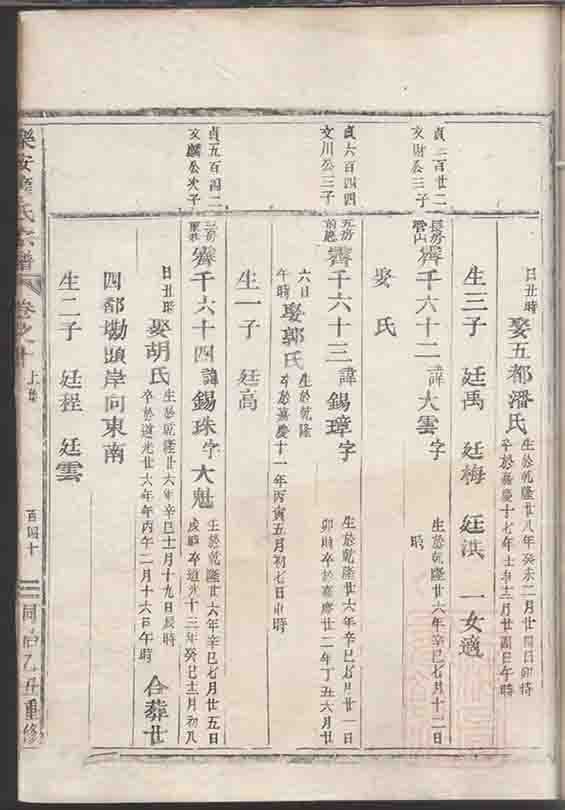 日丑時
娶五都潘氏
生於乾隆廿八年癸未二月廿四日卯時
卒於嘉慶十七年壬申十二月廿四日午時
生三子 廷禹 廷梅 廷洪 一女適
貞三百廿二
文財公三子
長房
管山
濟千六十二 諱大雲 字
生於乾隆廿六年辛巳七月十二日
時
娶 氏
貞六百四四
文川公三子
五房
前港
濟千六十三 諱錫璋 字
生於乾隆廿六年辛巳七月廿一日
卯時卒於嘉慶廿二年丁丑六月廿
六日
午時
娶郭氏
生於乾隆
卒於嘉慶十一年丙寅五月初七日申時
生一子 廷高
貞五百四二
文麟公次子
濟千六十四 諱錫珠 字大魁
生於乾隆廿六年辛巳七月廿五日
戌時卒道光十三年癸巳十二月初八
日丑時
娶胡氏
生於乾隆廿六年辛巳十二月十九日辰時
卒於道光廿六年丙午二月十六日午時
合葬廿
四都墈頭岸向東南
生二子 廷程 廷雲
樂安 氏宗譜
卷之十 上集
百四十
同治乙丑重修